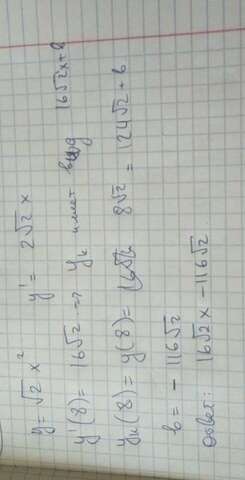 y = √2 x² y' = 2√2 x
y'(8) = 16√2 => yк имеет вид 16√2x + b
yк(8) = y(8) = 8√2 = 124√2 + b
b = - 116√2
Ответ: 16√2x - 116√2